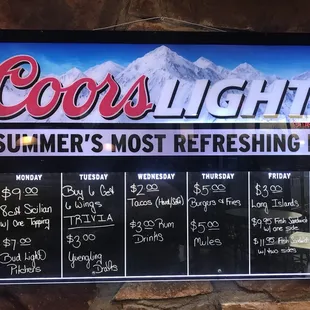 Coors LIGHT
SUMMER'S MOST REFRESHING
MONDAY
$9.00
8cut Sicilian
w/ One Topping
$7.00
Bud Light
Pitchers
TUESDAY
Buy 6 Get
6 Wings
TRIVIA
$3.00
Yuengling
Drafts
WEDNESDAY
$2.00
Tacos (Hard/Soft)
$3.00 Rum
Drinks
THURSDAY
$5.00
Burgers & Fries
$5.00
Mules
FRIDAY
$3.00
Long Islands
$9.95 Fish Sandwich
w/ one side
$11.95 Fish Sandwich
w/ two sides